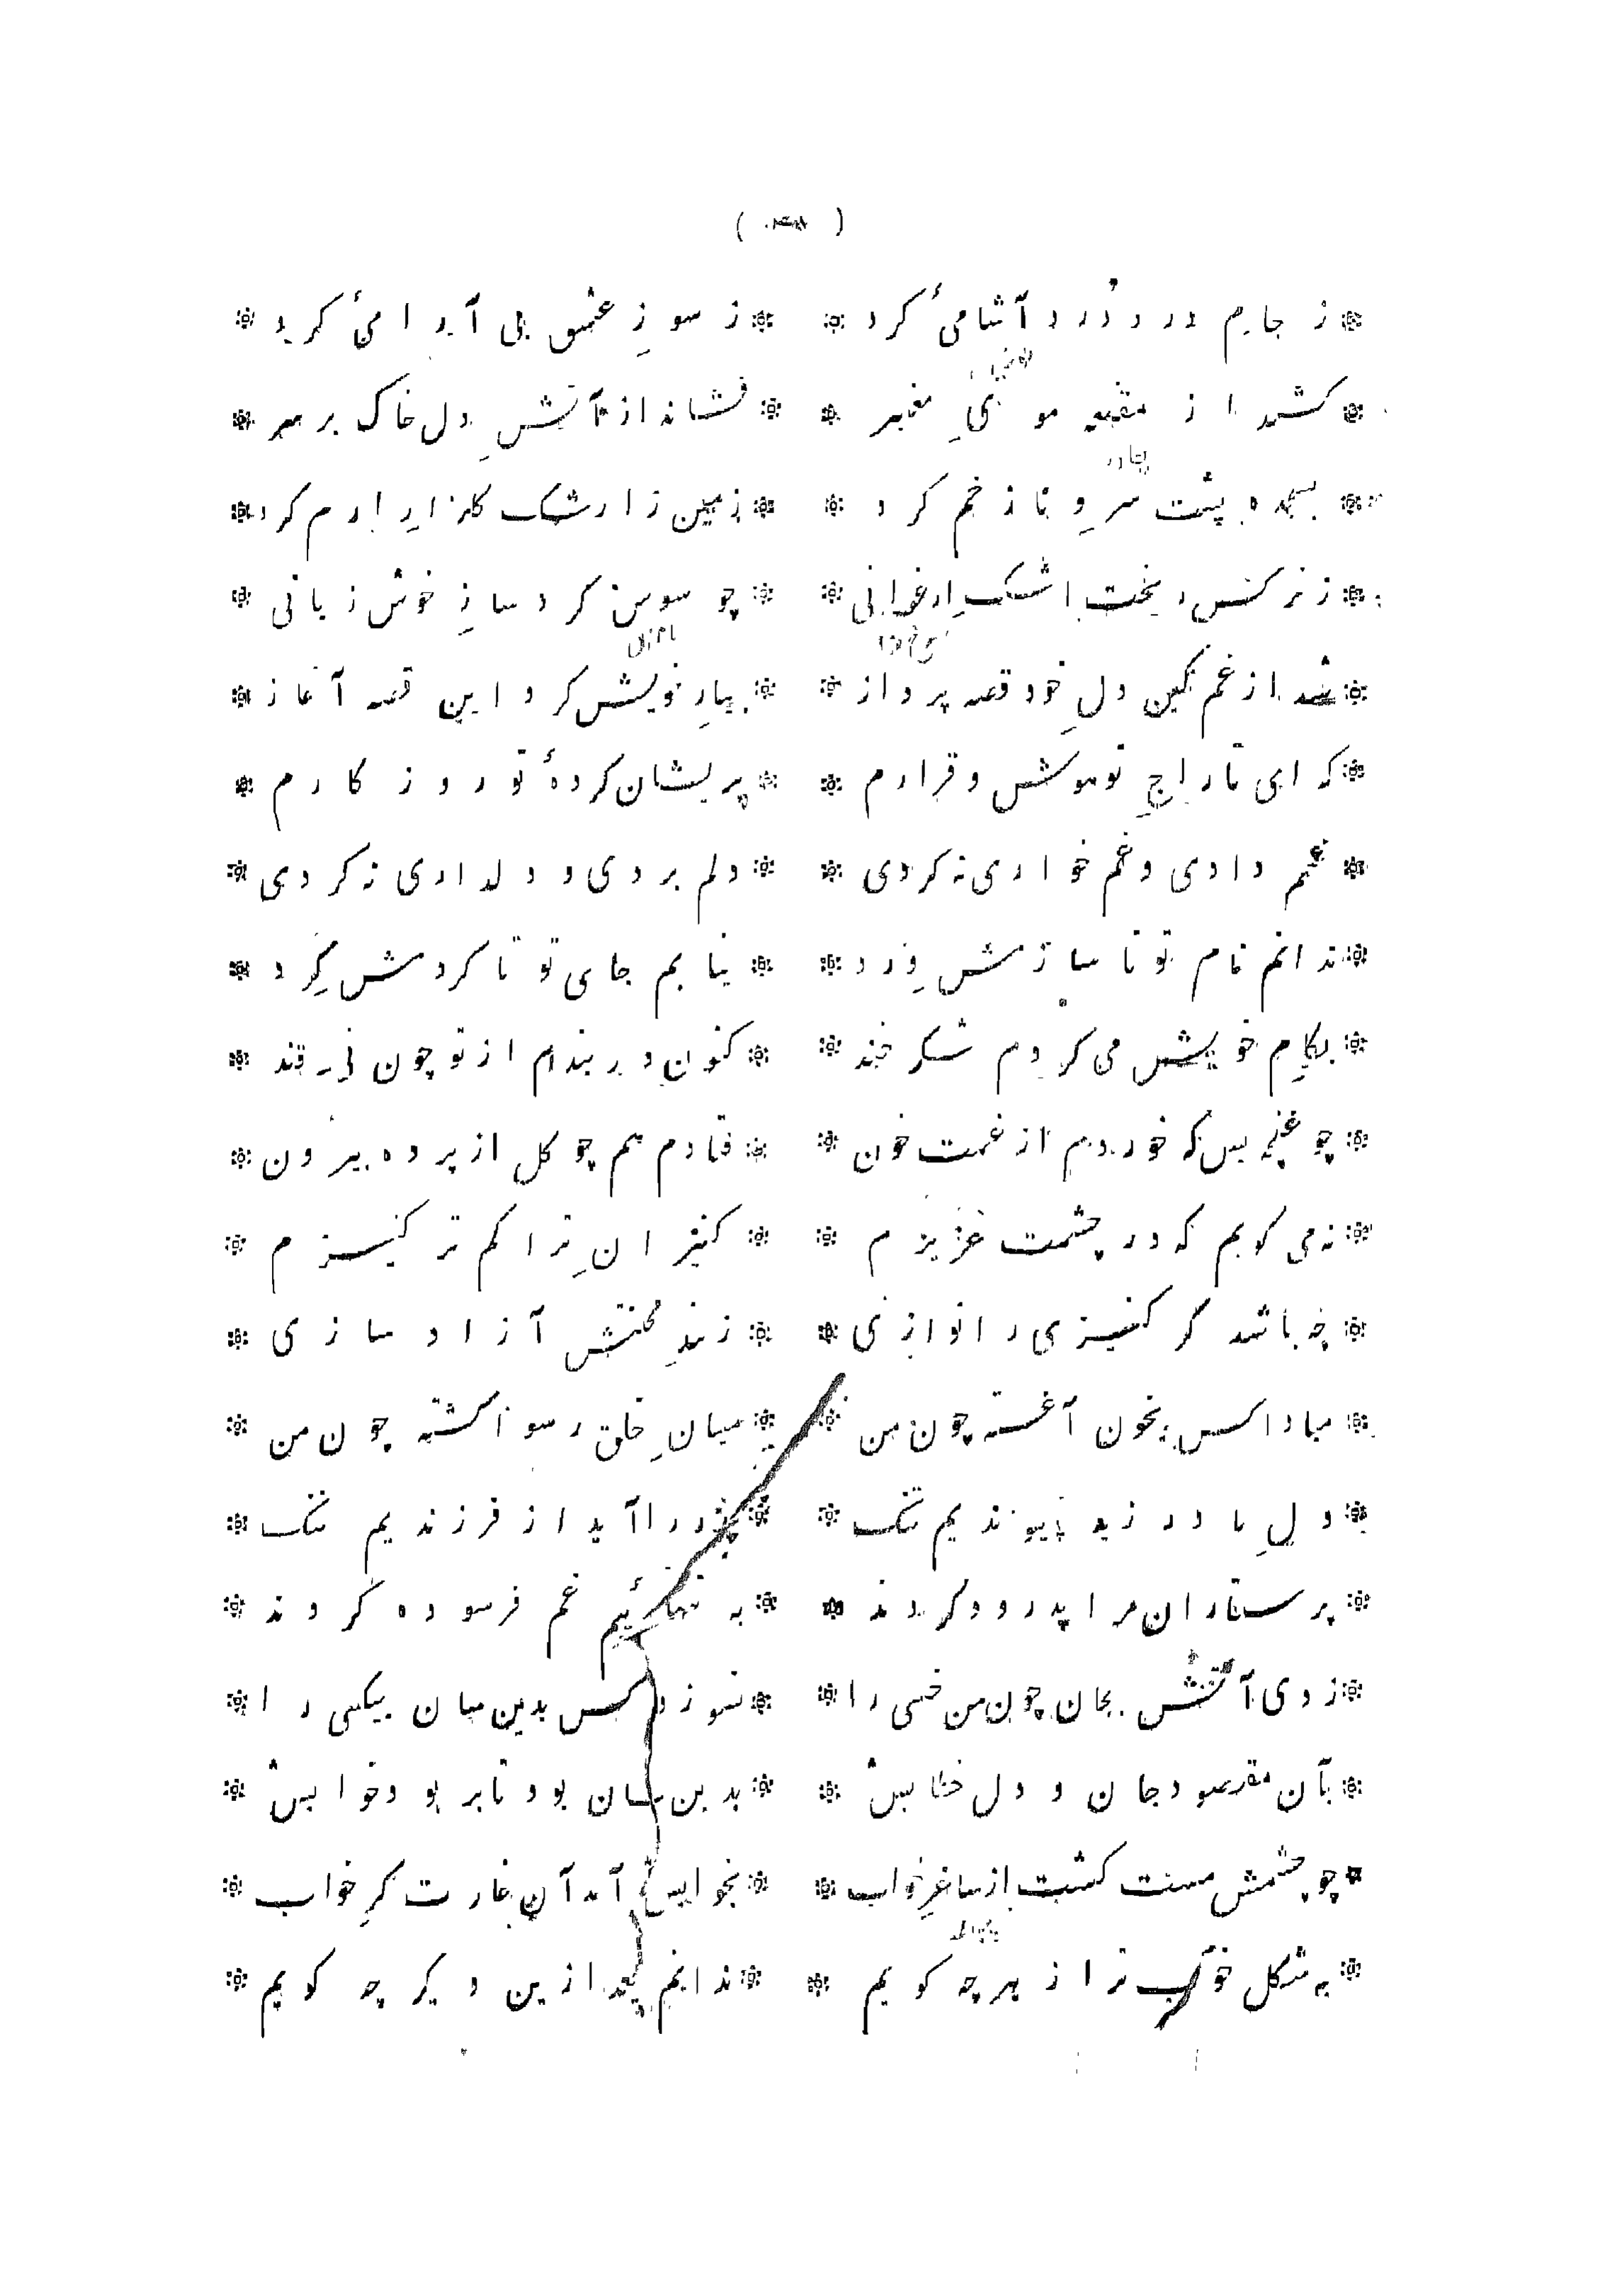 ز جام درد دُرد آشامیٔ کرد ز سوزِ عشق بی آرامیٔ کرد
کشید از مقنعه موی معنبر فشاند از آتشِ دل خاک بر سر
بسجده پشت سروِ ناز خم کرد زمین را رشک گلزارِ ارم کرد
ز نرگس ریخت اشک ارغوانی چو سوسن کرد سازِ خوش زبانی
شد از غمگین دلِ خود قصه پرداز بیارِ خویش کرد این قصه آغاز
که ای تاراجِ تو هوش و قرارم پریشان کردهٔ تو روزگارم
غمم دادی و غم خواری نه کردی دلم بردی و دلداری نه کردی
ندانم نام تو تا سازمش ورد نیابم جای تو تا کردمش گِرد
بکامِ خویش می کردم شکر خند کنون در بندم از تو چون نی قند
چو غنچه بس که خوردم از غمت خون فتادم هم چو گل از پرده بیرون
نه می گویم که در چشمت عزیزم کنیزانِ ترا کم تر کنیزم
چه باشد گر کنیزی را نوازی ز بندِ محنتش آزاد سازی
مبادا کس بخون آغشته چون من میانِ خلق رسوا گشته چون من
دلِ مادر ز بد پیوندیم تنگ پدر را آید از فرزندیم ننگ
پرستاران مرا پدرود کردند به تنهائیم غم فرسوده کردند
زدی آتش بجان چون من خسی را نسوزد کس بدین سان بیکسی را
بآن مقصود جان و دل خطابش بدین سان بود تا بر بود خوابش
چو چشمش مست گشت از ساغرِ خواب بخوابش آمد آن غارت گرِ خواب
به شکل خوب تر از هر چه گویم ندانم بعد ازین دیگر چه گویم